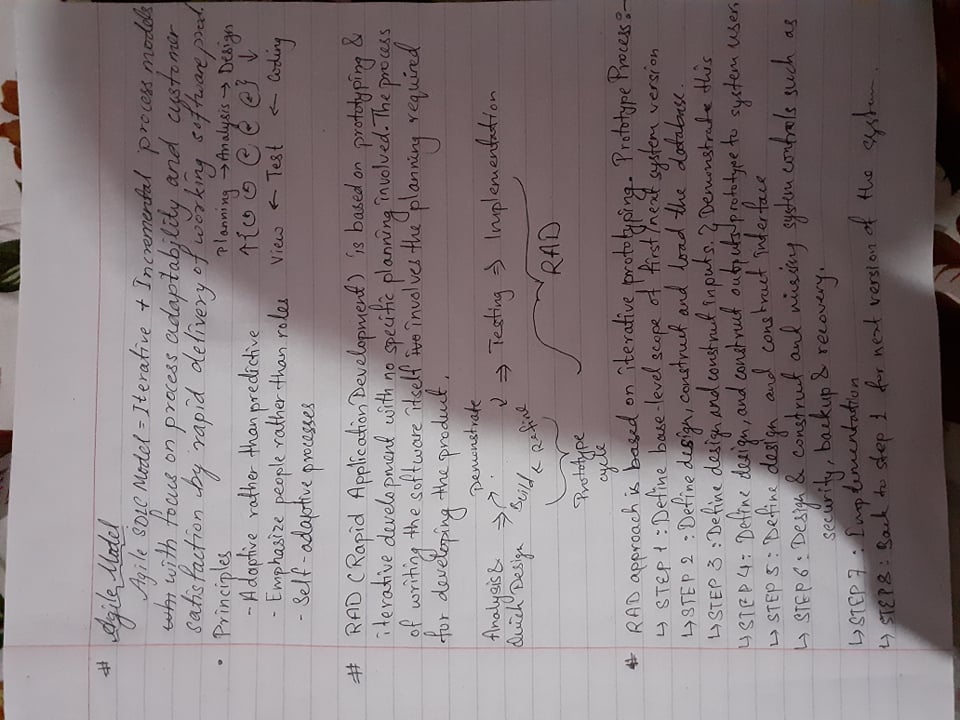 # Agile Model
Agile SDLC Model = Iterative + Incremental process models
with focus on process adaptability and customer
satisfaction by rapid delivery of working software prod.
• Principles
- Adaptive rather than predictive
- Emphasize people rather than roles
- Self-adaptive processes
Planning → Analysis → Design
↑ { } ↓
View ← Test ← Coding
# RAD (Rapid Application Development) is based on prototyping &
iterative development with no specific planning involved. The process
of writing the software itself involves the planning required
for developing the product.
Demonstrate
Analysis & ⇒ ⇒ Testing ⇒ Implementation
Quick Design Build ← Refine
RAD
Prototype
cycle
# RAD approach is based on iterative prototyping. Prototype Process :-
↳ STEP 1 : Define base-level scope of first/next system version
↳ STEP 2 : Define design, construct and load the database.
↳ STEP 3 : Define design and construct inputs. } Demonstrate this
↳ STEP 4 : Define design, and construct outputs prototype to system user
↳ STEP 5 : Define design and construct interface
↳ STEP 6 : Design & construct and missing system controls such as
security, backup & recovery.
↳ STEP 7 : Implementation
↳ STEP 8 : Back to step 1 for next version of the system.